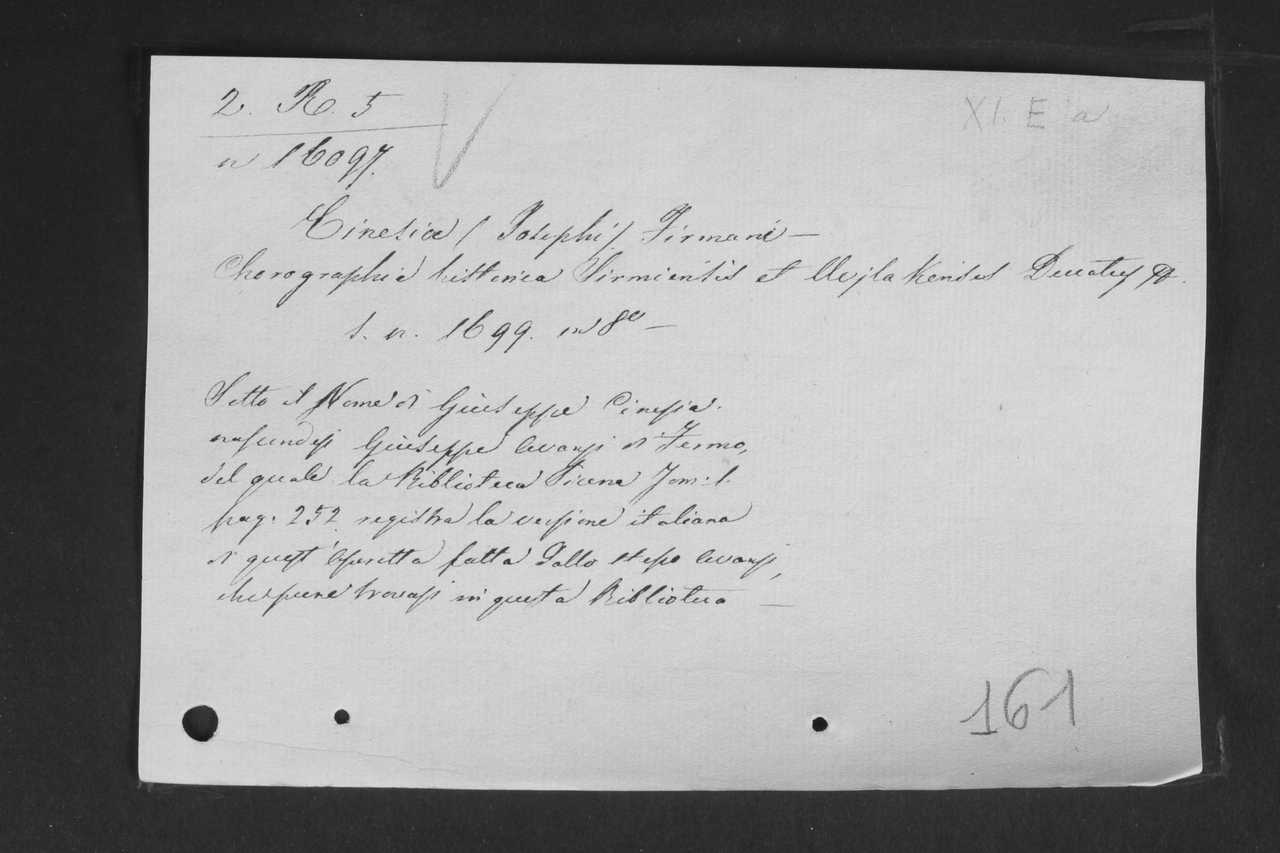 2. R. 5
XI. E a
n 16097.
Cinesiæ (Josephi) Firmani —
Chorographia historica Sirmiensis et Ujlakensis Ducatus
s. n. 1699. in 8º —
Sotto il Nome di Giuseppe Cinesia
nascondesi Giuseppe di Fermo,
del quale la Biblioteca Picena Tom: 1.
pag. 252 registra la versione italiana
di quest'operetta fatta dallo stesso
che pure trovasi in questa Biblioteca —
161